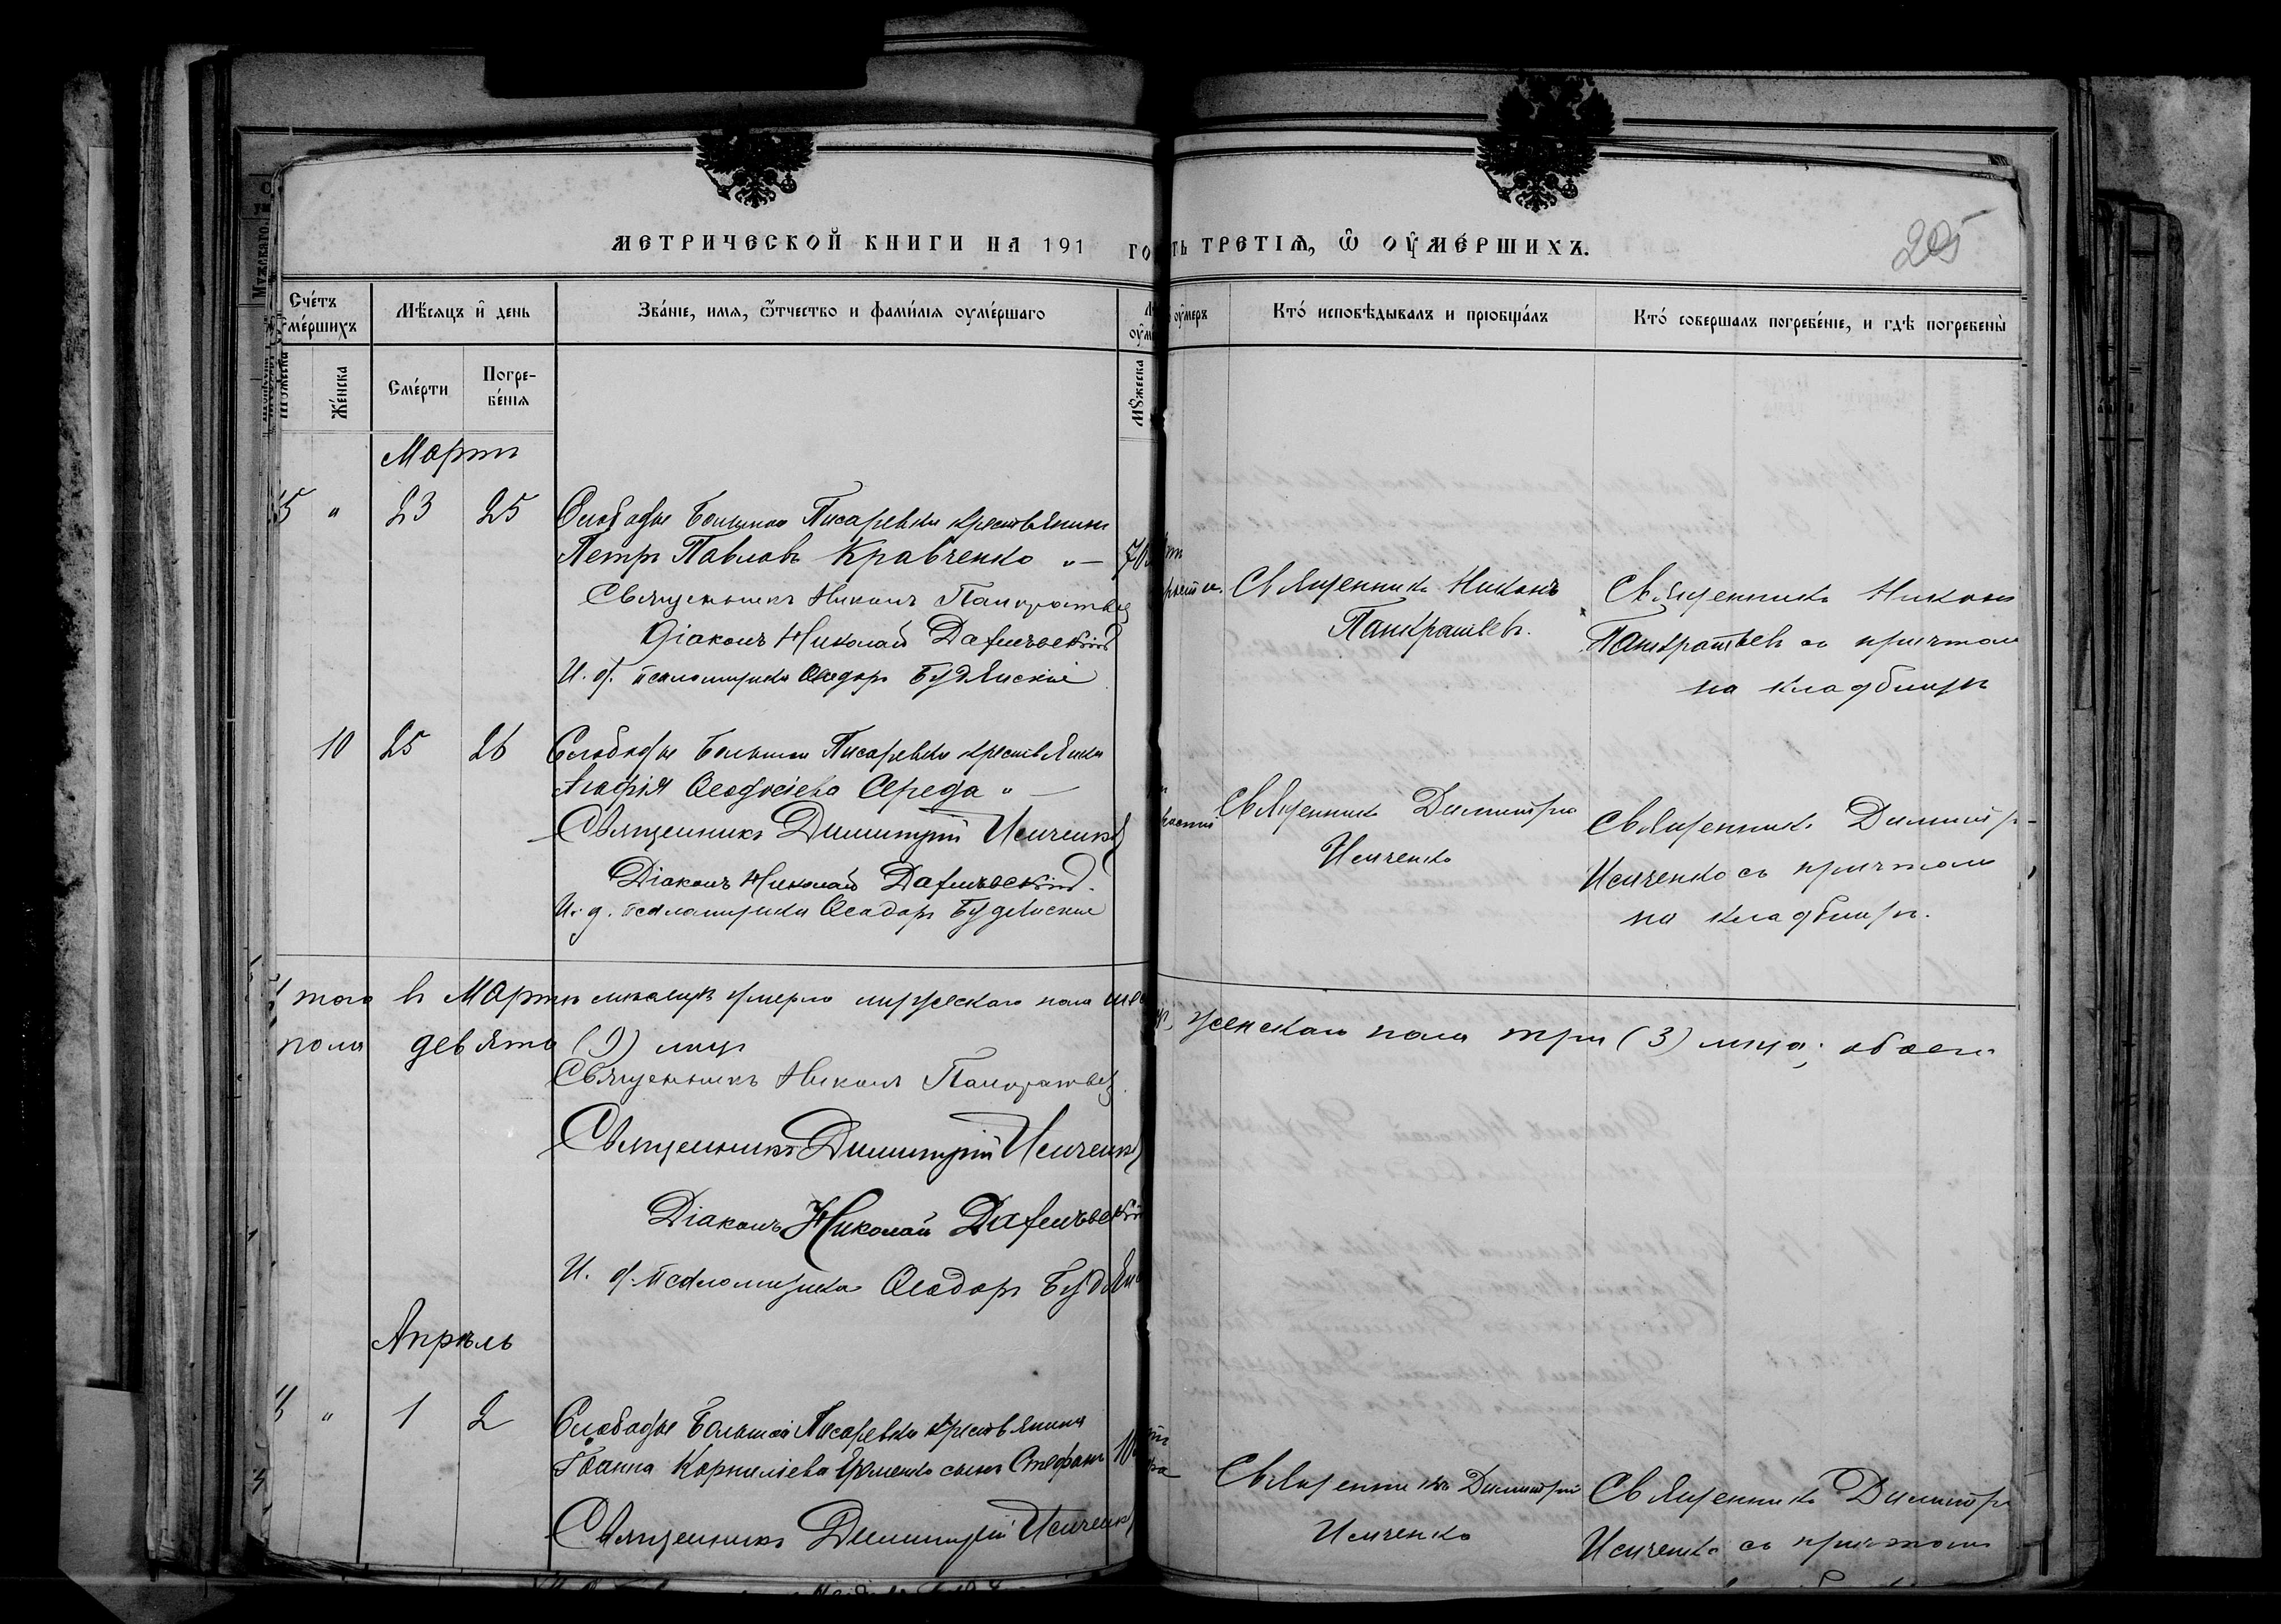 205
МЕТРИЧЕСКОЙ КНИГИ НА 191 ГО
ТЬ ТРЕТІѦ, Ѡ ОУМЕРШИХЪ.
Счетъ
умершихъ
Мѣсяцъ и день
Званіе, имя, ѿчество и фамилія оумершаго
оумеръ
Кто исповѣдывалъ и пріобщалъ
Кто совершалъ погребеніе, и гдѣ погребены
Мужеска
Женска
Смерти
Погре-
бенія
Мужеска
Мартъ
15 " 23 25 Слободы Большой Писаревки крестьянинъ
Петръ Павловъ Кравченко "—
70
Священникъ Никонъ Панкратьевъ
Діаконъ Николай
И. д. псаломщика Ѳеодоръ Будянскій
Священникъ Никонъ
Панкратьевъ.
Священникъ Никонъ
Панкратьевъ съ причтомъ
на кладбищѣ
10 25 26 Слободы Большой Писаревки крестьянка
Агафія Ѳеодосіева Середа "—
Священникъ Димитрій Исиченко
Діаконъ Николай
И. д. псаломщика Ѳеодоръ Будянскій
Священникъ Димитрій
Исиченко
Священникъ Димитрі
Исиченко съ причтомъ
на кладбищѣ.
Итого въ Мартѣ мѣсяцѣ умерло мужескаго пола
женскаго пола три (3) лица; обоего
пола девять (9) лицъ
Священникъ Никонъ Панкратьевъ
Священникъ Димитрій Исиченко
Діаконъ Николай
И. д. псаломщика Ѳеодоръ Будян
Апрѣль
" 1 2 Слободы Большой Писаревки крестьянина
Іоанна Корниліева сынъ Стефанъ
10
Священникъ Димитрій Исиченко
Священникъ Димитрій
Исиченко
Священникъ Димитрі
Исиченко съ причтомъ